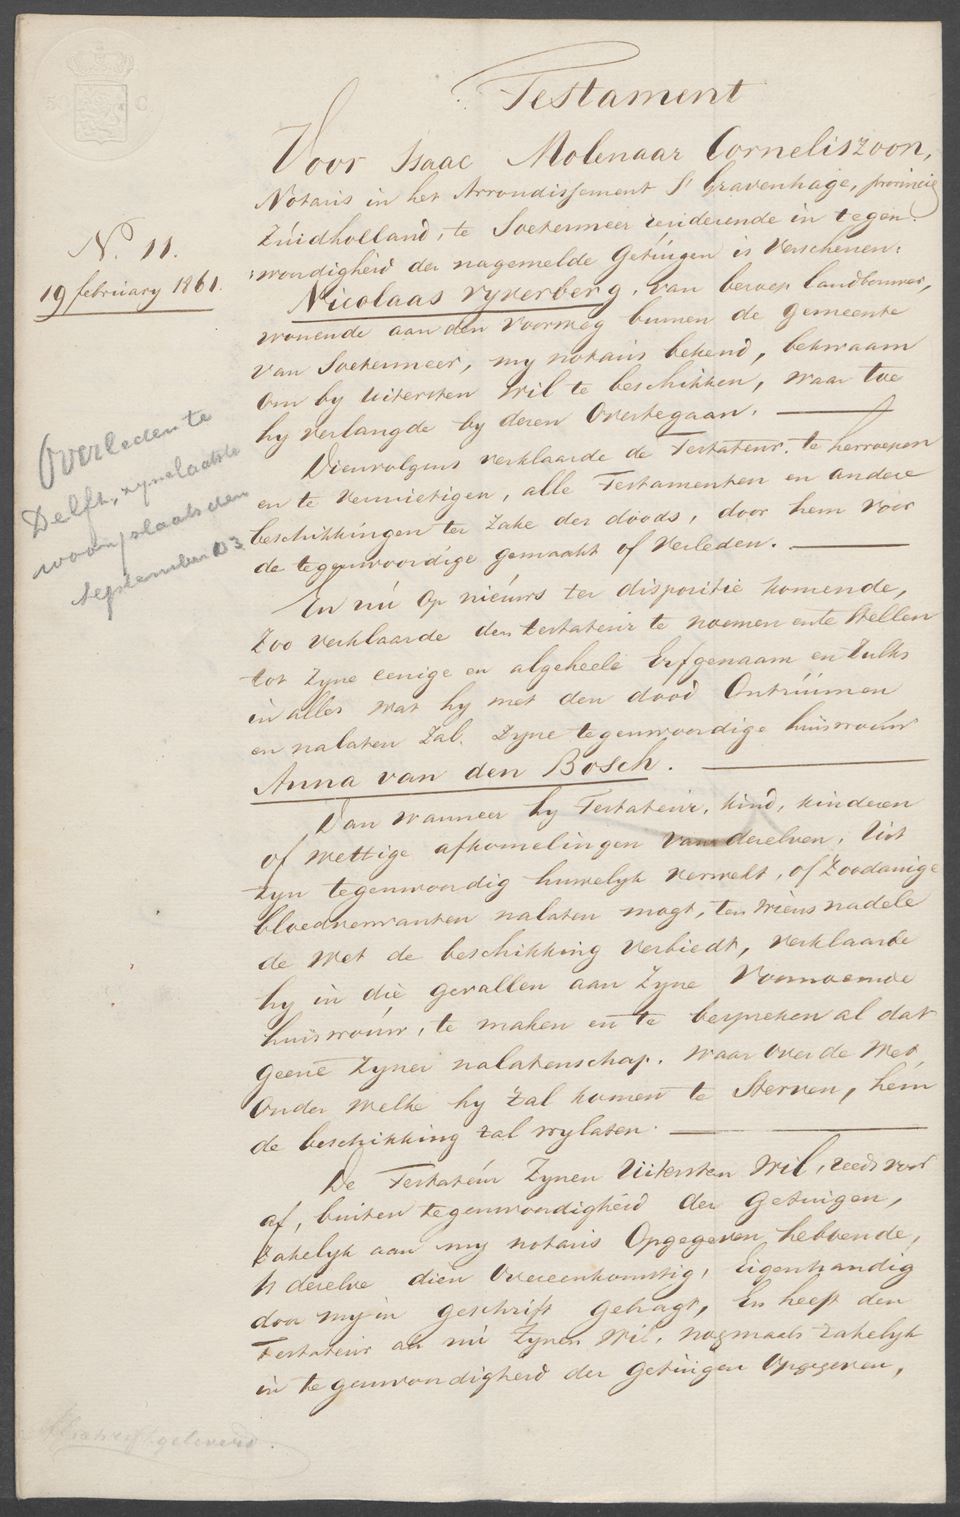 50 C
Testament
Voor Isaac Molenaar Corneliszoon,
Notaris in het Arrondissement S' Gravenhage, provincie
Zuidholland, te Soetermeer residerende in tegen
woordigheid der nagemelde Getuigen is Verschenen:
N.o 11.
19 february 1861.
Nicolaas Vyverberg, van beroep landbouwer,
wonende aan den Voorweg binnen de gemeente
van Soetermeer, my notaris bekend, bekwaam
om by Uitersten Wil te beschikken, waar toe
hy verlangde by deren Overtegaan.
Overleden te
Delft, zyne laatste
woonplaats den
September 03
Dienvolgens verklaarde de Testateur, te herroepen
en te vernietigen, alle Testamenten en andere
beschikkingen ter zake des doods, door hem voor
de tegenwoordige gemaakt of verleden.
En nú op nieuws ter dispositie komende,
Zoo verklaarde den testateur te noemen en te Stellen
tot Zyne eenige en algeheele Erfgenaam en Zulks
in alles wat hy met den dood Ontruimen
en nalaten Zal. Zyne tegenwoordige huisvrouw
Anna van den Bosch.
Dan wanneer hy Testateur, kind, kinderen
of wettige afkomelingen van derelven, Uit
Zyn tegenwoordig huwelyk verwekt, of Zoodanige
bloedverwanten nalaten mogt, ten wiens nadele
de Wet de beschikking verbiedt, verklaarde
hy in die gevallen aan Zyne Voornoemde
huisvrouw, te maken en te bespreken al dat
geene Zyner nalatenschap, waar over de Wet,
Onder welke hy Zal komen te Sterven, hem
de beschikking zal vrylaten.
De Testateur Zynen Uitersten Wil, reeds voor
af, buiten tegenwoordigheid der Getuigen,
Zakelyk aan my notaris Opgegeven hebbende,
is derelve dien Overeenkomstig, Eigenhandig
door my in geschrift gebragt, En heeft den
Testateur als nú Zynen Wil, nogmaals Zakelyk
in tegenwoordigheid der Getuigen Opgegeven,
Afschrift geleverd.